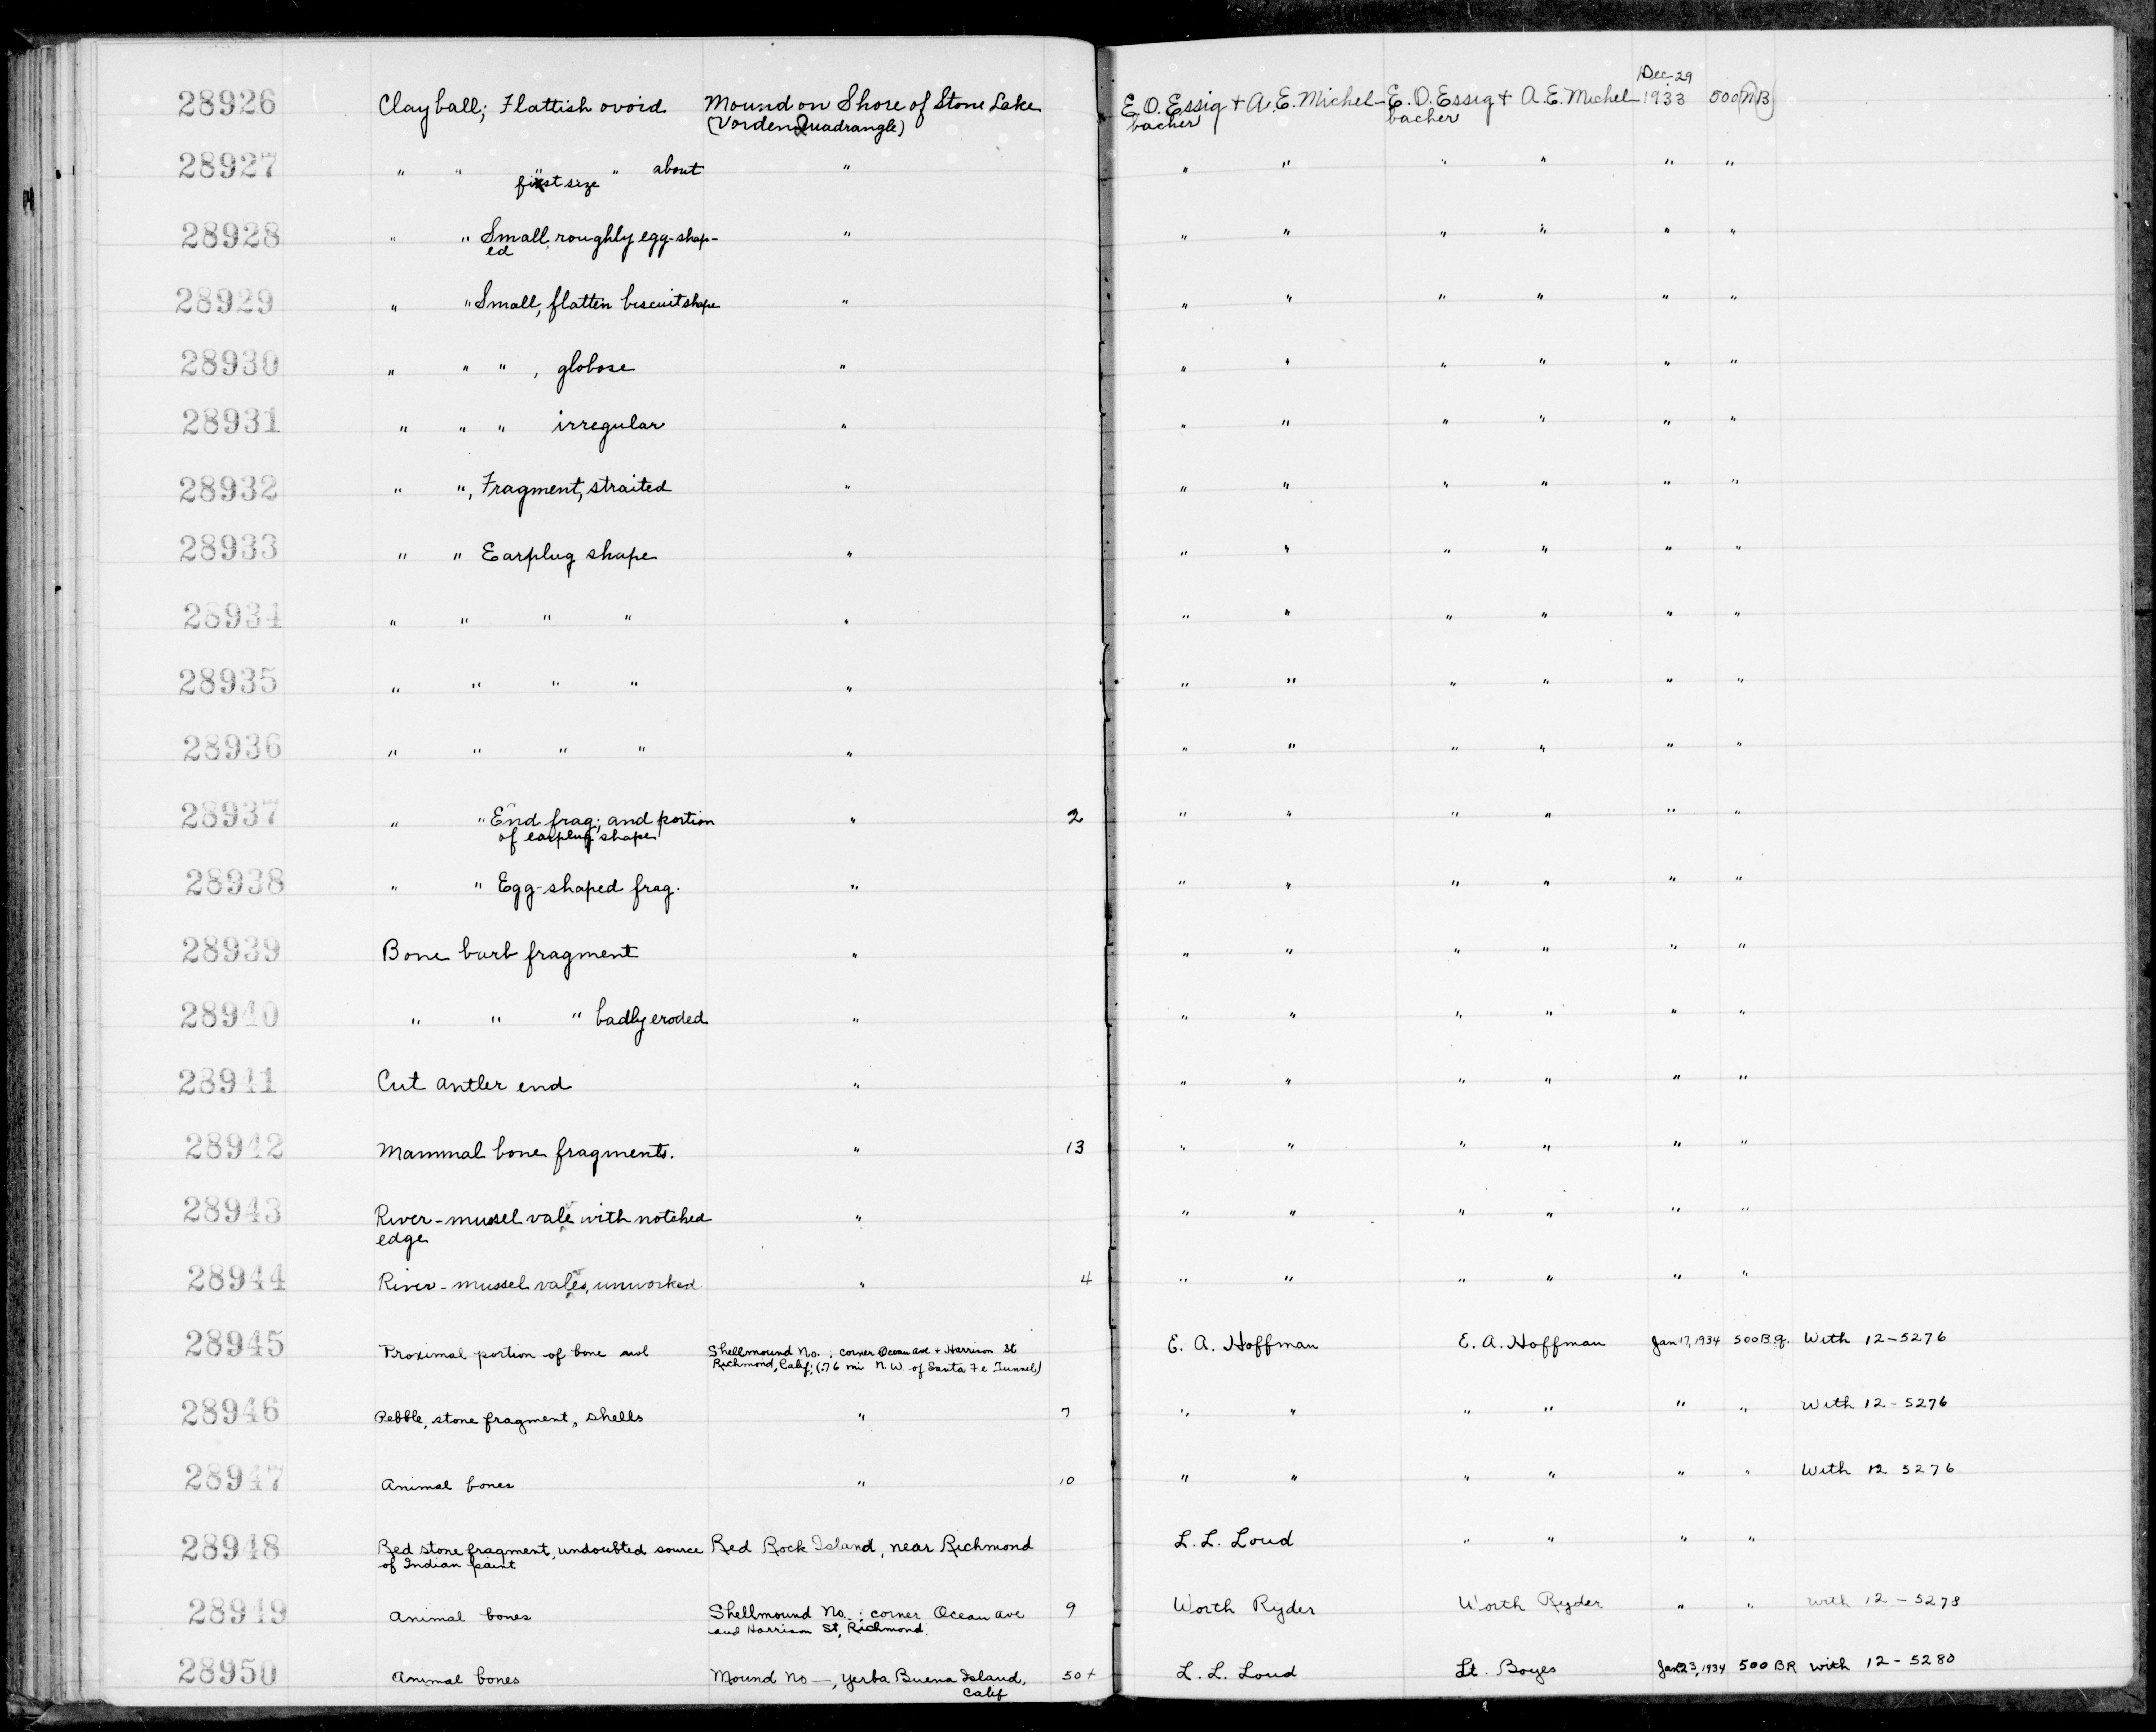 Dec-29
28926 Clay ball; Flattish ovoid Mound on Shore of Stone Lake E.O. Essig + A.E. Michel- E.O. Essig + A.E. Michel- 1933 500
(Vorden Quadrangle) bacher bacher
28927 " " " " about " " " " " " "
fist size
28928 " " Small, roughly egg-shap- " " " " " " "
ed
28929 " " Small, flatten biscuit shape " " " " " " "
28930 " " " , globose " " " " " " "
28931 " " " irregular " " " " " " "
28932 " ", Fragment, straited " " " " " " "
28933 " " Earplug shape " " " " " " "
28934 " " " " " " " " " " "
28935 " " " " " " " " " " "
28936 " " " " " " " " " " "
28937 " " End frag; and portion " 2 " " " " " "
of earplug shape
28938 " " Egg-shaped frag. " " " " " " "
28939 Bone barb fragment " " " " " " "
28940 " " " badly eroded " " " " " " "
28941 Cut antler end " " " " " " "
28942 Mammal bone fragments. " 13 " " " " " "
28943 River-mussel vale with notched " " " " " " "
edge
28944 River-mussel vales, unworked " 4 " " " " " "
28945 Proximal portion of bone awl Shellmound No. ; corner Ocean ave + Harrison St E. A. Hoffman E. A. Hoffman Jan 17, 1934 500 B.q. With 12-5276
Richmond, Calif; (.76 mi N.W. of Santa Fe Tunnel)
28946 Pebble, stone fragment, shells " 7 " " " " " " With 12-5276
28947 Animal bones " 10 " " " " " " With 12 5276
28948 Red stone fragment, undoubted source Red Rock Island, near Richmond L. L. Loud " " " "
of Indian paint
28949 Animal bones Shellmound No. ; corner Ocean ave 9 Worth Ryder Worth Ryder " " with 12-5278
and Harrison St, Richmond.
28950 Animal bones Mound No —, Yerba Buena Island, 50+ L. L. Loud Lt. Boyes Jan 23, 1934 500 BR with 12-5280
Calif